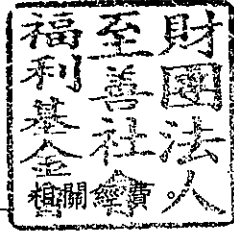 財團法人
至善社會
福利基金會
相關經費。